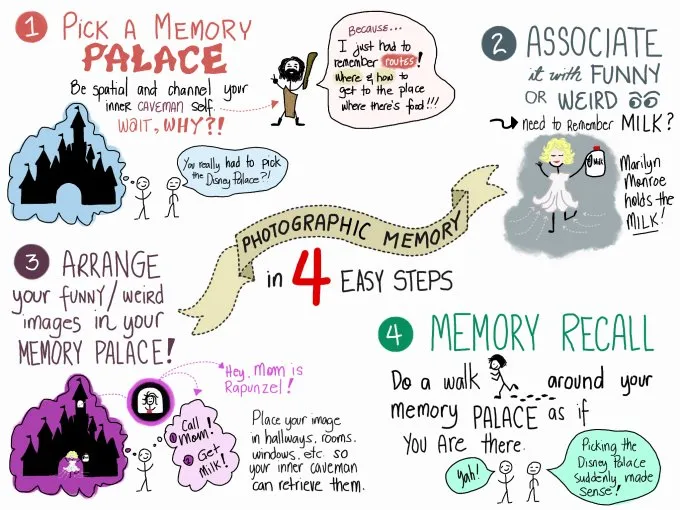 1 PICK A MEMORY
PALACE
Be spatial and channel your
inner CAVEMAN self.
WAIT, WHY?!
BECAUSE...
I just had to
remember routes!
Where & how to
get to the place
where there's food!!!
You really had to pick
the Disney Palace?!
2 ASSOCIATE
it with FUNNY
OR WEIRD
need to Remember MILK?
Milk
Marilyn
Monroe
holds the
MILK!
PHOTOGRAPHIC MEMORY
in 4 EASY STEPS
3 ARRANGE
your FUNNY/weird
images in your
MEMORY PALACE!
"Hey, Mom is
Rapunzel!
1 Call
Mom!
2 Get
Milk!
Place your image
in hallways, rooms,
windows, etc so
your inner caveman
can retrieve them.
4 MEMORY RECALL
Do a walk around your
memory PALACE as if
YOU ARE there.
Yah!
Picking the
Disney Palace
suddenly made
sense!